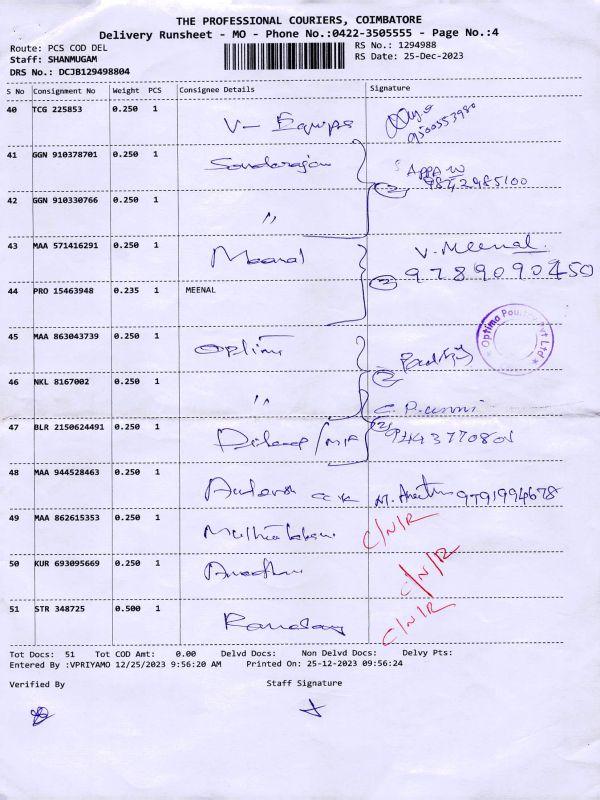 THE PROFESSIONAL COURIERS, COIMBATORE
Delivery Runsheet - MO - Phone No.:0422-3505555 - Page No.:4
Route: PCS COD DEL
RS No.: 1294988
Staff: SHANMUGAM
RS Date: 25-Dec-2023
DRS No.: DCJB129498804
S No Consignment No Weight PCS Consignee Details Signature
40 TCG 225853 0.250 1
V- Equips
9500553980
41 GGN 910378701 0.250 1
Sundarajan
APPA W
9842985100
42 GGN 910330766 0.250 1
"
2
43 MAA 571416291 0.250 1
Meenal
V. Meenal.
9789090450
44 PRO 15463948 0.235 1 MEENAL
2
45 MAA 863043739 0.250 1
Optima
Optima Poultry Pvt Ltd
46 NKL 8167002 0.250 1
"
2
47 BLR 2150624491 0.250 1
2
48 MAA 944528463 0.250 1
9791994678
49 MAA 862615353 0.250 1
C/N/R
50 KUR 693095669 0.250 1
C/N/R
51 STR 348725 0.500 1
C/N/R
Tot Docs: 51 Tot COD Amt: 0.00 Delvd Docs: Non Delvd Docs: Delvy Pts:
Entered By :VPRIYAMO 12/25/2023 9:56:20 AM Printed On: 25-12-2023 09:56:24
Verified By Staff Signature